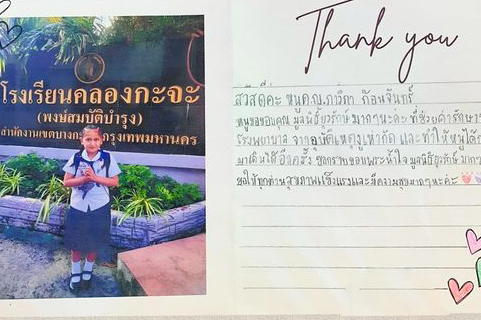 โรงเรียนคลองกะจะ
(พงษ์สมบัติบำรุง)
สำนักงานเขตบางกะปิ กรุงเทพมหานคร
Thank you
สวัสดีค่ะ หนู
หนูขอขอบคุณ มูลนิธิยุวรักษ์ มากๆนะคะ ที่ช่วยค่ารักษา
โรงพยาบาล จากอุบัติเหตุงูเห่ากัด และทำให้หนูได้
มาเดินได้อีกครั้ง ขอกราบขอบพระน้ำใจ มูลนิธิยุวรักษ์ มากๆ
ขอให้ทุกท่านสุขภาพแข็งแรงและมีความสุขมากๆนะค่ะ